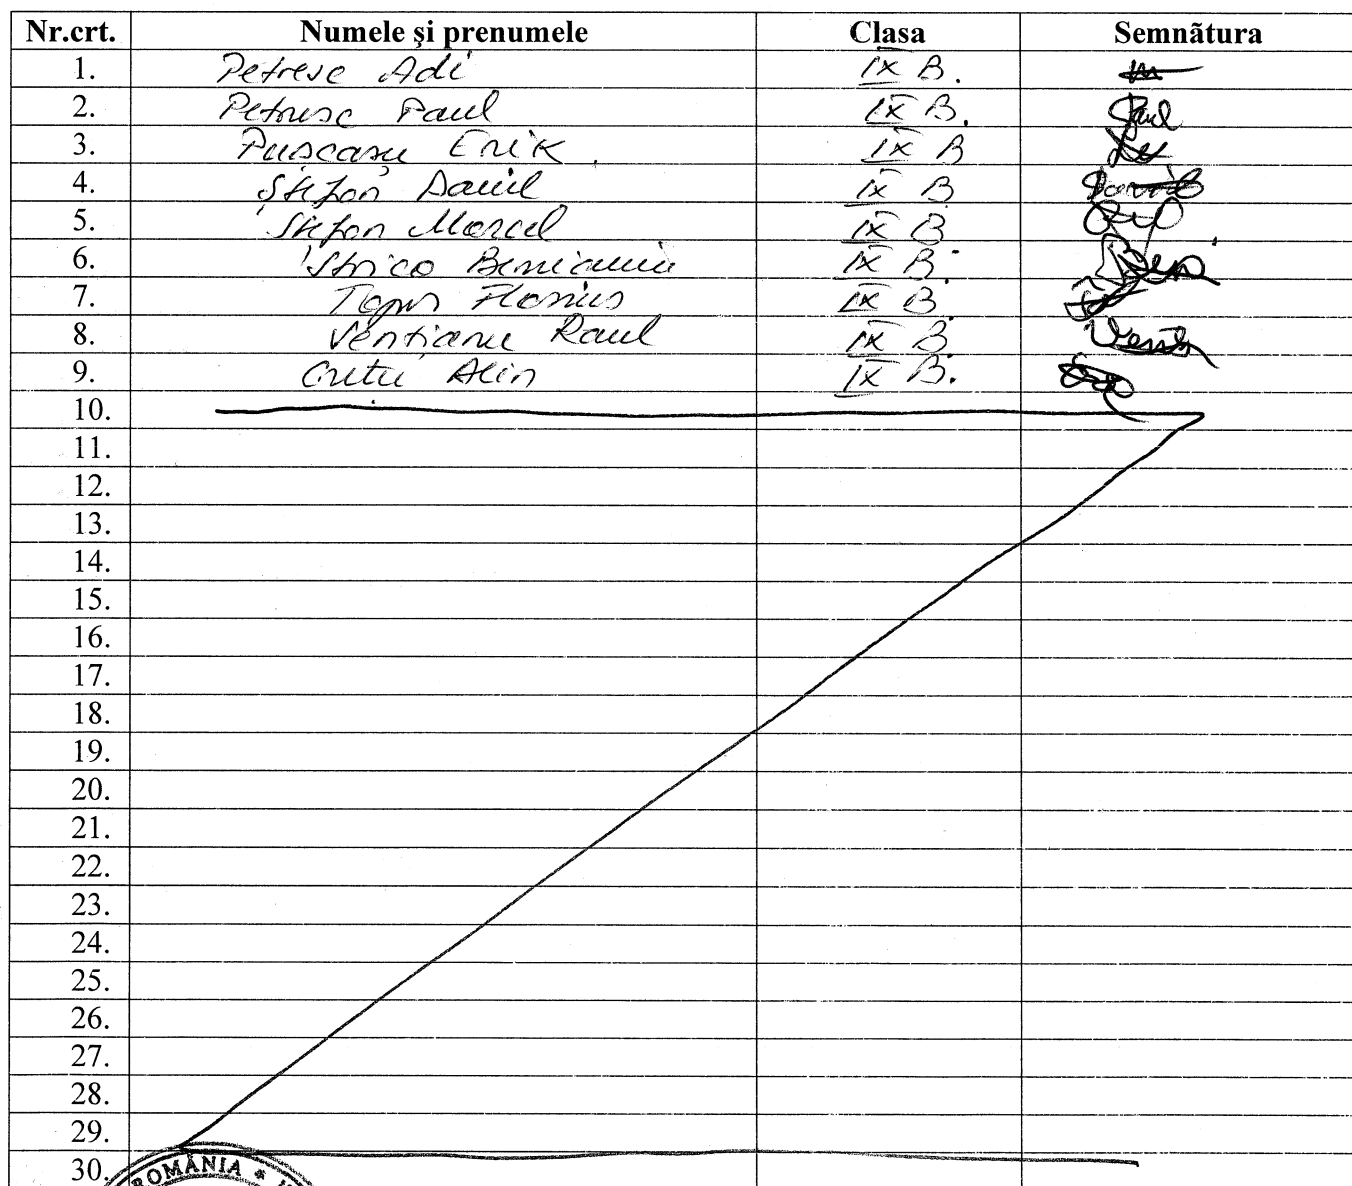 Nr.crt. Numele şi prenumele Clasa Semnãtura
1. Petresc Adi IX B.
2. Petrusc Paul IX B. Paul
3. Pușcașu Erik IX B
4. Ștefan Daniel IX B
5. Ștefan Marcel IX B
6. Beniamin IX B.
7. IX B.
8. Raul IX B
9. Crețu Alin IX B.
10.
11.
12.
13.
14.
15.
16.
17.
18.
19.
20.
21.
22.
23.
24.
25.
26.
27.
28.
29.
30.
ROMÂNIA *